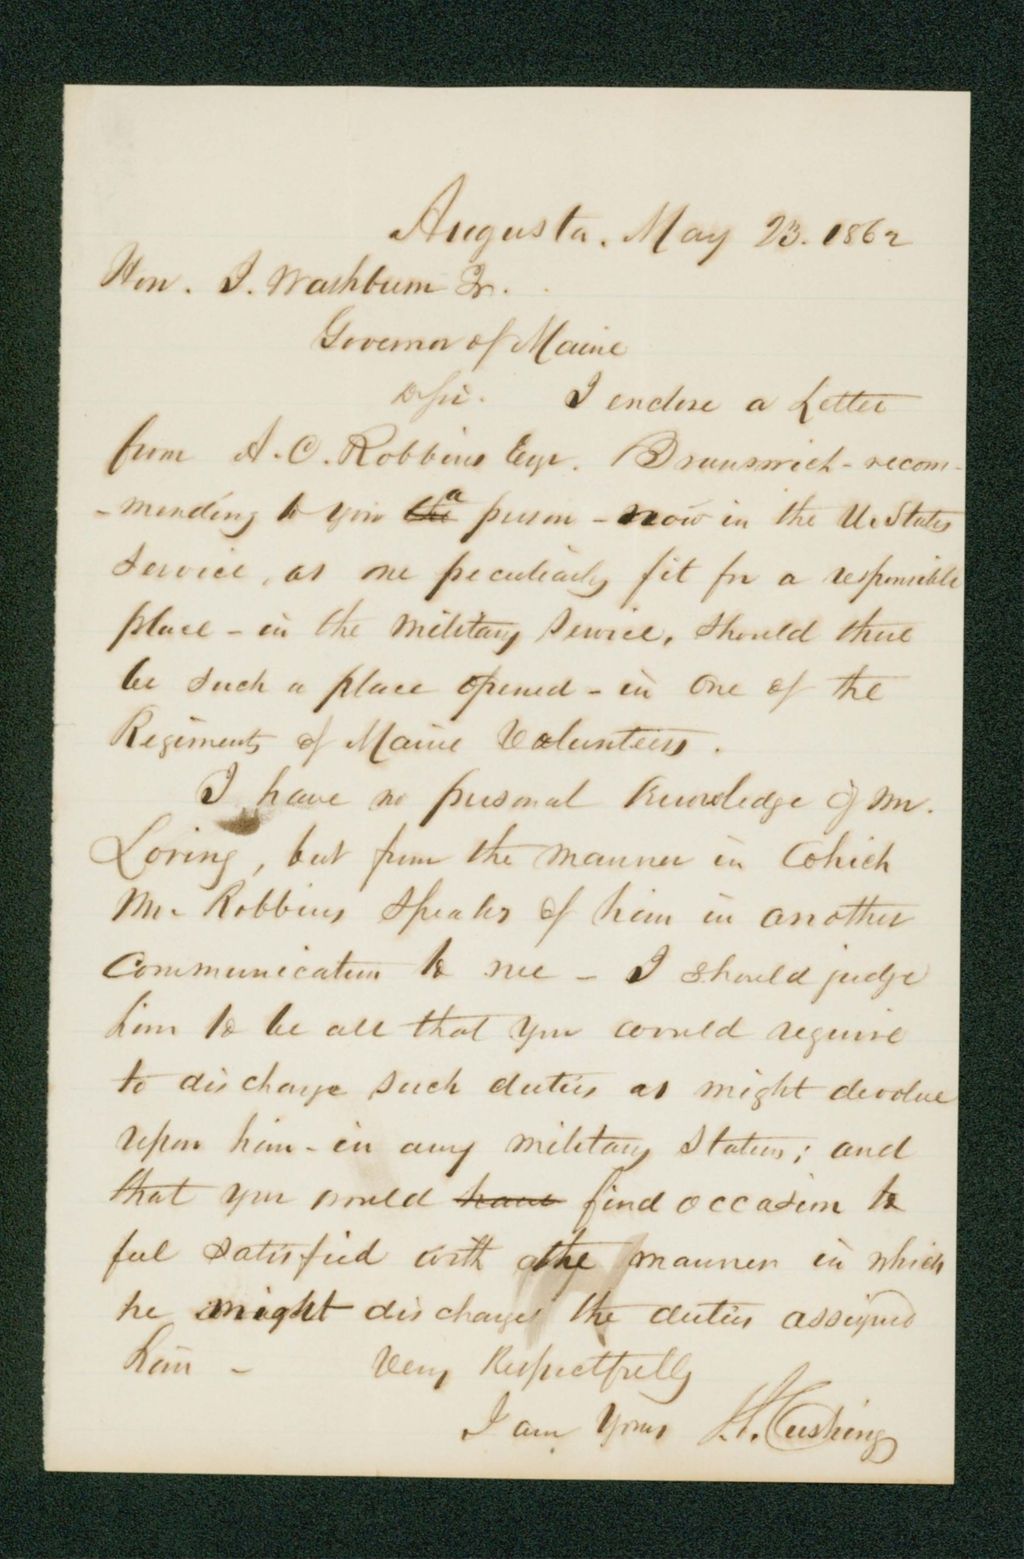 Augusta. May 23. 1862
Hon. I. Washburn Jr.
Governor of Maine
Sir. I enclose a Letter
from A. C. Robbins Esqr. Brunswick - recom-
-mending to you a person - now in the U. States
Service, as one peculiarly fit for a responsible
place - in the military Service, should there
be such a place opened - in one of the
Regiments of Maine Volunteers.
I have no personal Knowledge of Mr.
Loring, but from the manner in which
Mr. Robbins speaks of him in another
Communication to me - I should judge
him to be all that you would require
to discharge such duties as might devolve
upon him - in any military Station; and
that you would have find occasion to
feel satisfied with the manner in which
he might discharge the duties assigned
him -
Very Respectfully
I am Yours Cushing